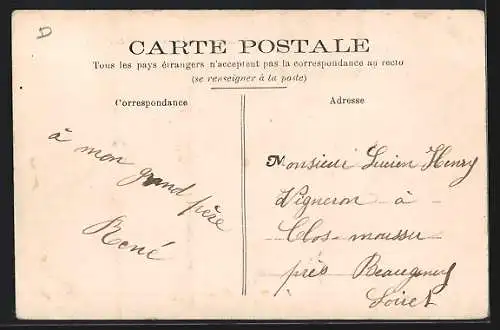 CARTE POSTALE
Tous les pays étrangers n'acceptent pas la correspondance au recto
(se renseigner à la poste)
Correspondance
Adresse
à mon grand père
René
Monsieur Lucien Henry
Vigneron à
Clos-moussu
près Beaugency
Loiret